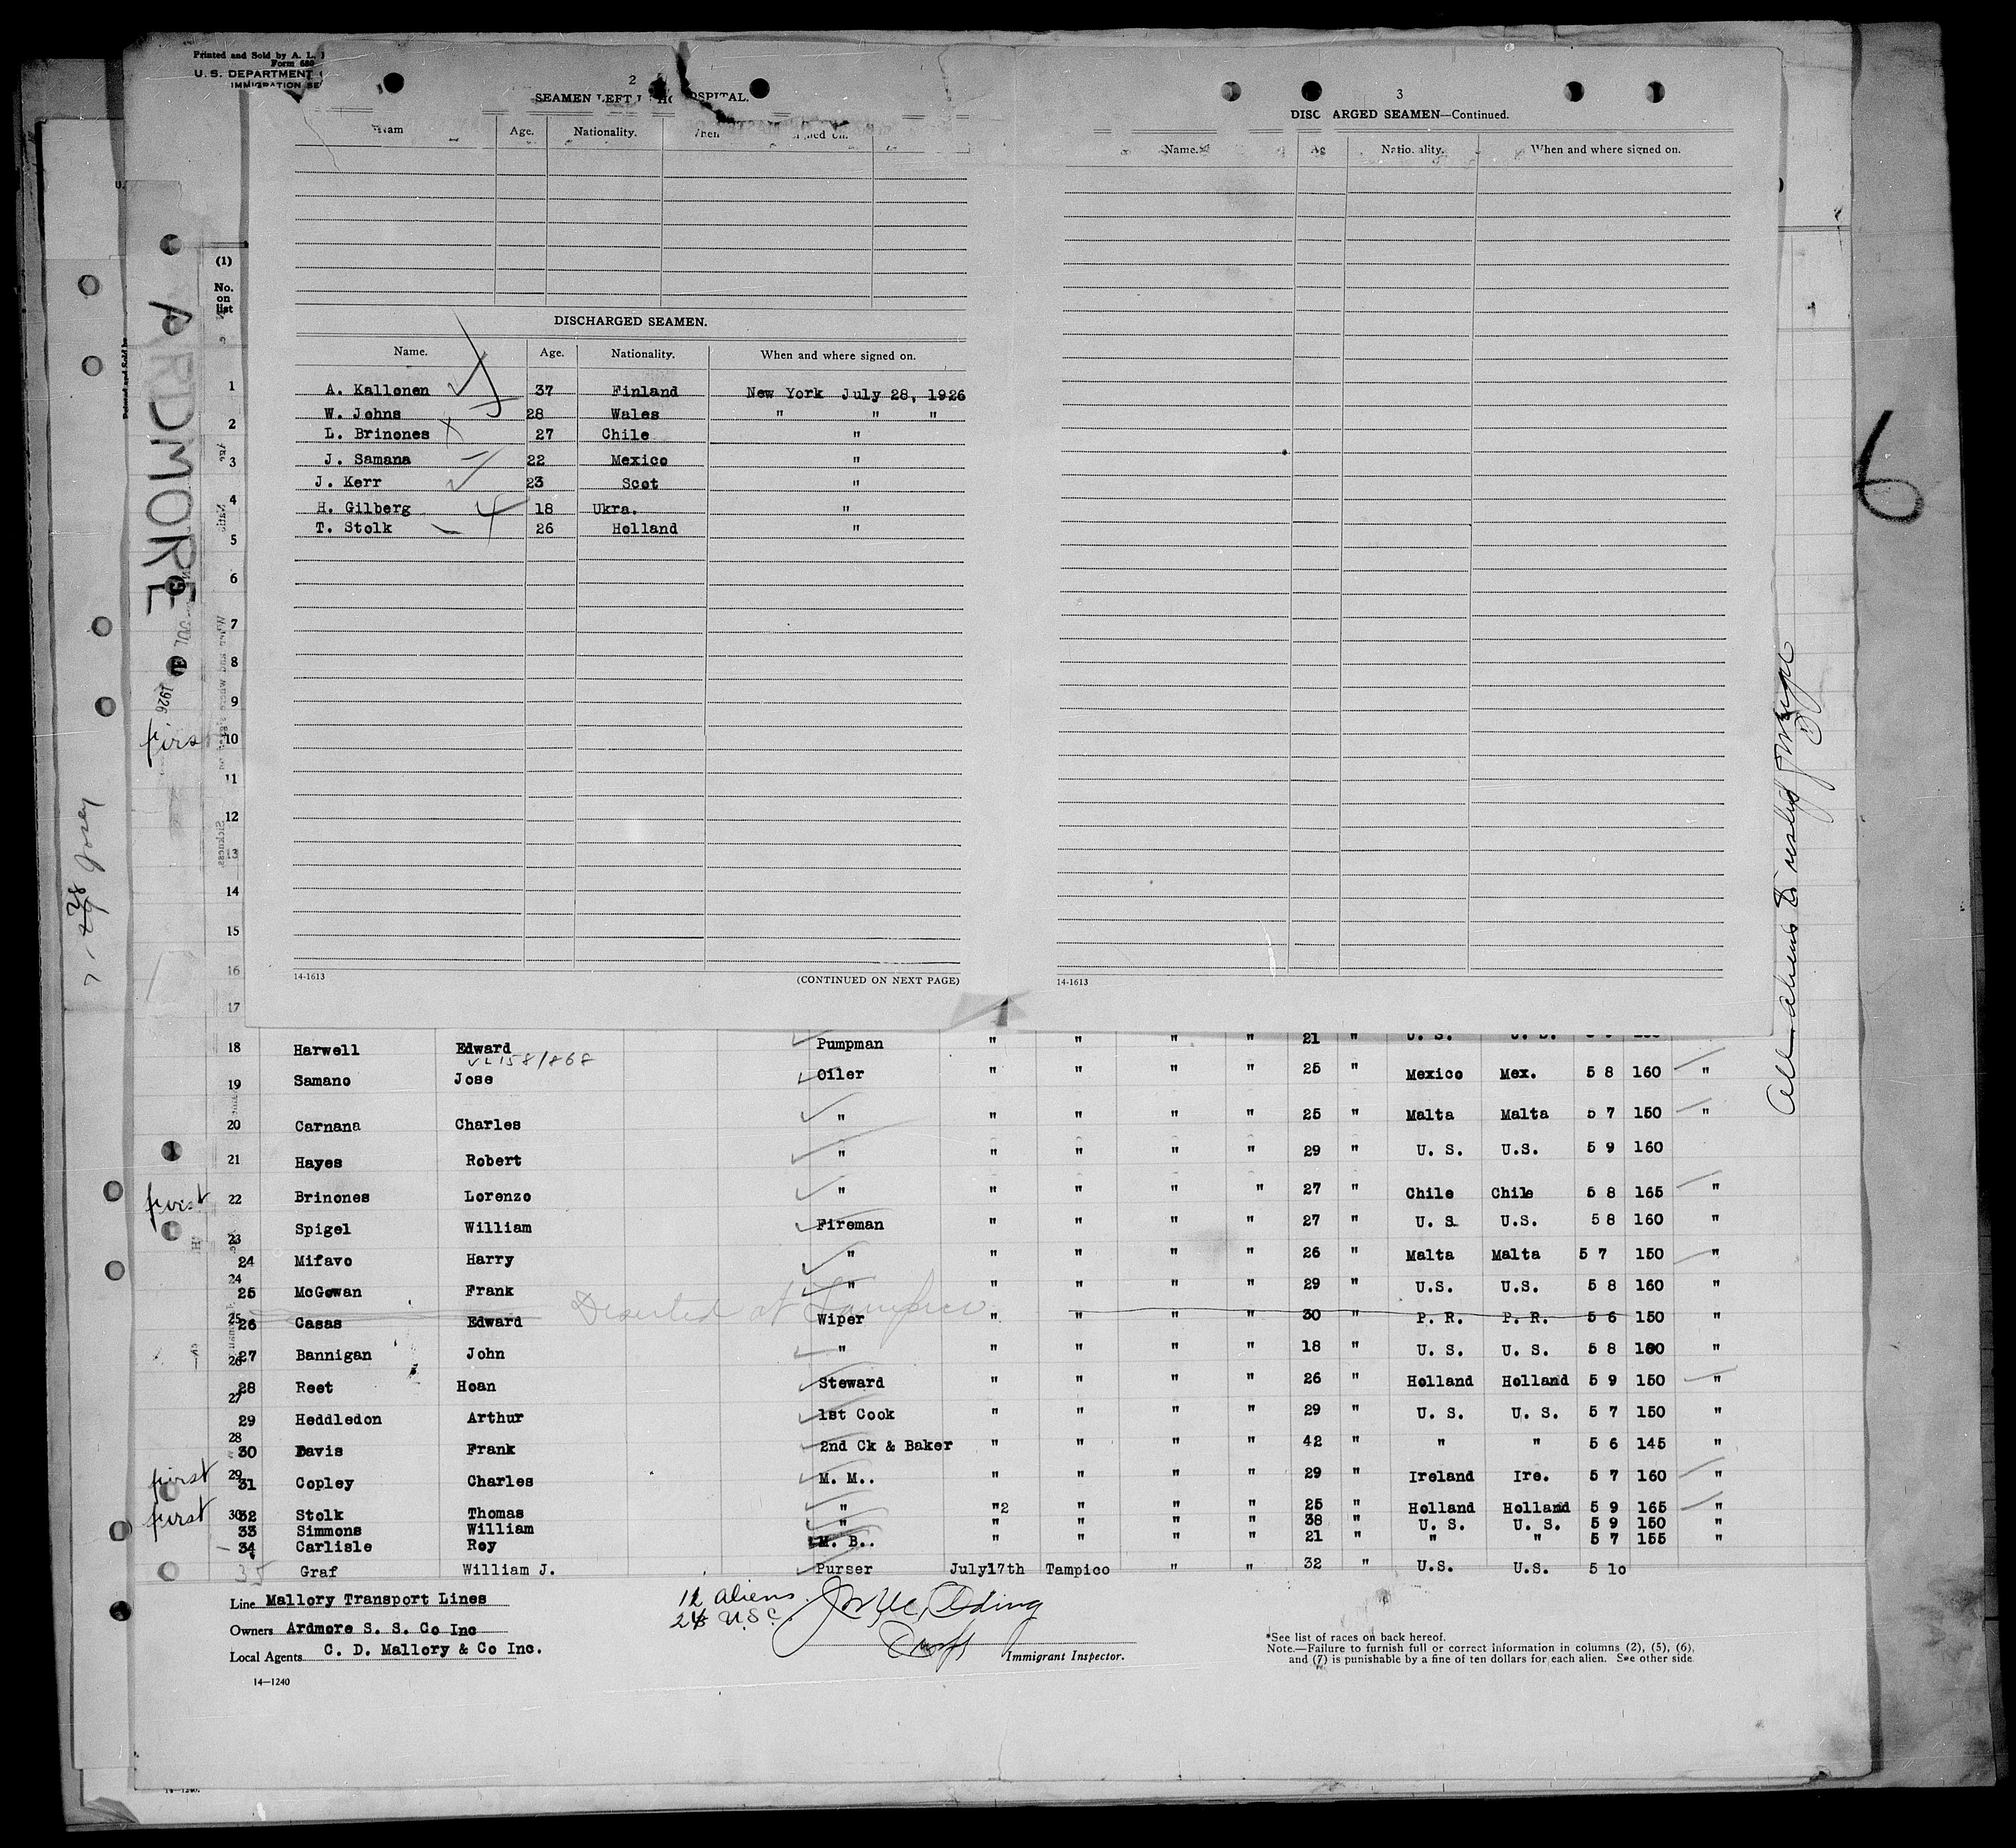 Printed and Sold by A. L.
Form 680
U. S. DEPARTMENT
IMMIGRATION SE
2
SEAMEN LEFT HOSPITAL.
Nam Age. Nationality. When signed on.
DISCHARGED SEAMEN.
Name. Age. Nationality. When and where signed on.
A. Kallonen 37 Finland New York July 28, 1926
W. Johns 28 Wales " " "
L. Brinones 27 Chile "
J. Samana 22 Mexico "
J. Kerr 23 Scot "
H. Gilberg 18 Ukra. "
T. Stolk 26 Holland "
14-1613 (CONTINUED ON NEXT PAGE)
3
DISCHARGED SEAMEN—Continued.
Name. Ag Nationality. When and where signed on.
14-1613
(1)
No.
on
list
1
2
3
4
5
6
7
8
9
10
11
12
13
14
15
16
17
ARDMORE
1926
first
6
18 Harwell Edward Pumpman " " " " 21 " U. S. U. S.
158/868
19 Samano Jose Oiler " " " " 25 " Mexico Mex. 5 8 160 "
20 Carnana Charles " " " " " 25 " Malta Malta 5 7 150 "
21 Hayes Robert " " " " " 29 " U. S. U.S. 5 9 160
first 22 Brinones Lorenzo " " " " " 27 " Chile Chile 5 8 165 "
23 Spigel William Fireman " " " " 27 " U. S. U.S. 5 8 160 "
24 Mifavo Harry " " " " " 26 " Malta Malta 5 7 150 "
24 25 McGowan Frank " " " " " 29 " U.S. U.S. 5 8 160 "
25 26 Casas Edward Deserted at Tampico Wiper " " " " 30 " P. R. P. R. 5 6 150 "
26 27 Bannigan John " " " " " 18 " U. S. U. S. 5 8 180 "
27 28 Reet Hoan Steward " " " " 26 " Holland Holland 5 9 150 "
29 Heddledon Arthur 1st Cook " " " " 29 " U. S. U. S. 5 7 150 "
28 30 Davis Frank 2nd Ck & Baker " " " " 42 " " " 5 6 145 "
first 29 31 Copley Charles M. M.. " " " " 29 " Ireland Ire. 5 7 160 "
first 30 32 Stolk Thomas " "2 " " " 25 " Holland Holland 5 9 165 "
33 Simmons William " " " " " 38 " U. S. U. S. 5 9 150 "
34 Carlisle Roy M. B.. " " " " 21 " " " 5 7 155 "
35 Graf William J. Purser July17th Tampico " " 32 " U.S. U.S. 5 10
Line Mallory Transport Lines
Owners Ardmore S. S. Co Inc
Local Agents C. D. Mallory & Co Inc.
12 aliens
U.S.C.
Immigrant Inspector.
*See list of races on back hereof.
Note.—Failure to furnish full or correct information in columns (2), (5), (6),
and (7) is punishable by a fine of ten dollars for each alien. See other side
14—1240
All aliens
14—1240.